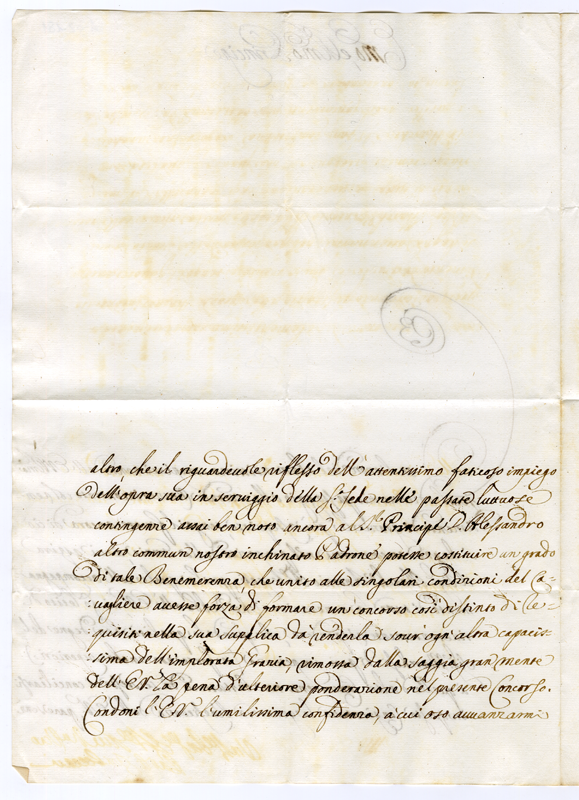 altro che il riguardeuole riflesso dell'attentissimo faticoso impiego
dell'opra sua in seruiggio della S. Sede nelle passate luttuose
contingenze assai ben noto ancora al Sr. Principe D. Alessandro
altro commun nostro inchinato Padrone potesse costituire un grado
di tale Benemerenza che unito alle singolari condizioni del Ca-
-uagliere auesse forza di formare un concorso così distinto di Re-
-quisiti nella sua supplica da renderla sour' ogn' altra capacis-
-sima dell'implorata Grazia, rimossa dalla saggia gran mente
dell' E.V. la pena d'ulteriore ponderazione nel presente Concorso.
Condoni l'E.V. l'umilissima confidenza, à cui oso auuanzarmi